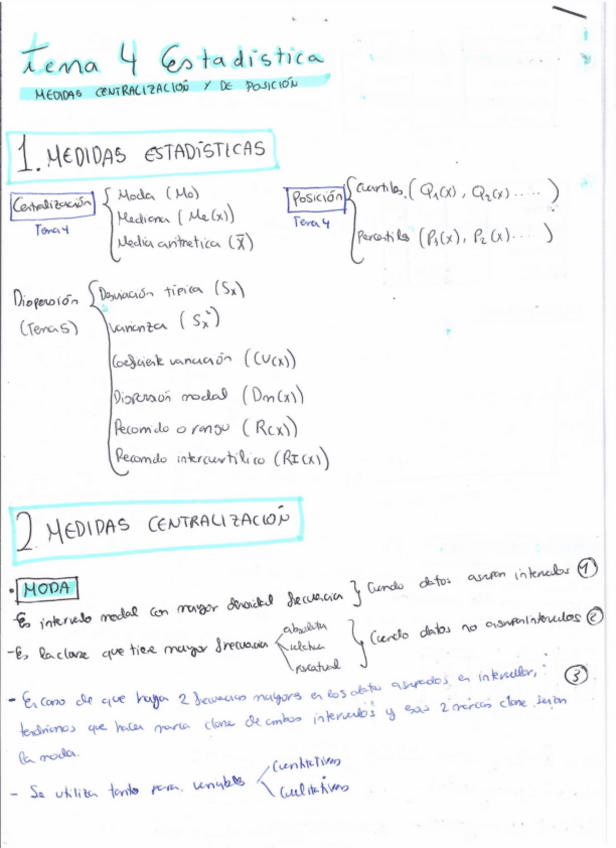 Tema 4 Estadistica
MEDIDAS CENTRALIZACIÓN Y DE POSICIÓN
1. MEDIDAS ESTADÍSTICAS
Centralización
Tema 4
Moda (Mo)
Mediana (Me(x))
Media aritmetica (x̄)
Posición
Tema 4
Cuartiles (Q₁(x), Q₂(x) .....)
Percentiles (P₁(x), P₂(x) ....)
Dispersión
(Tema 5)
Desviación típica (Sx)
Varianza (Sx²)
Coeficiente variación (CV(x))
Dispersión modal (Dm(x))
Recorrido o rango (R(x))
Recorrido intercuartílico (RI(x))
2. MEDIDAS CENTRALIZACIÓN
• MODA
- Es intervalo modal con mayor densidad frecuencia } Cuando datos agrupan intervalos ①
- Es la clase que tiene mayor frecuencia absoluta relativa porcentual } Cuando datos no agrupan intervalos ②
- En caso de que haya 2 frecuencias mayores en los datos agrupados en intervalos, ③
tendriamos que hacer marca clase de ambos intervalos y esas 2 marcas clase serian
la moda.
- Se utiliza tanto para variables cuantitativas
cualitativas